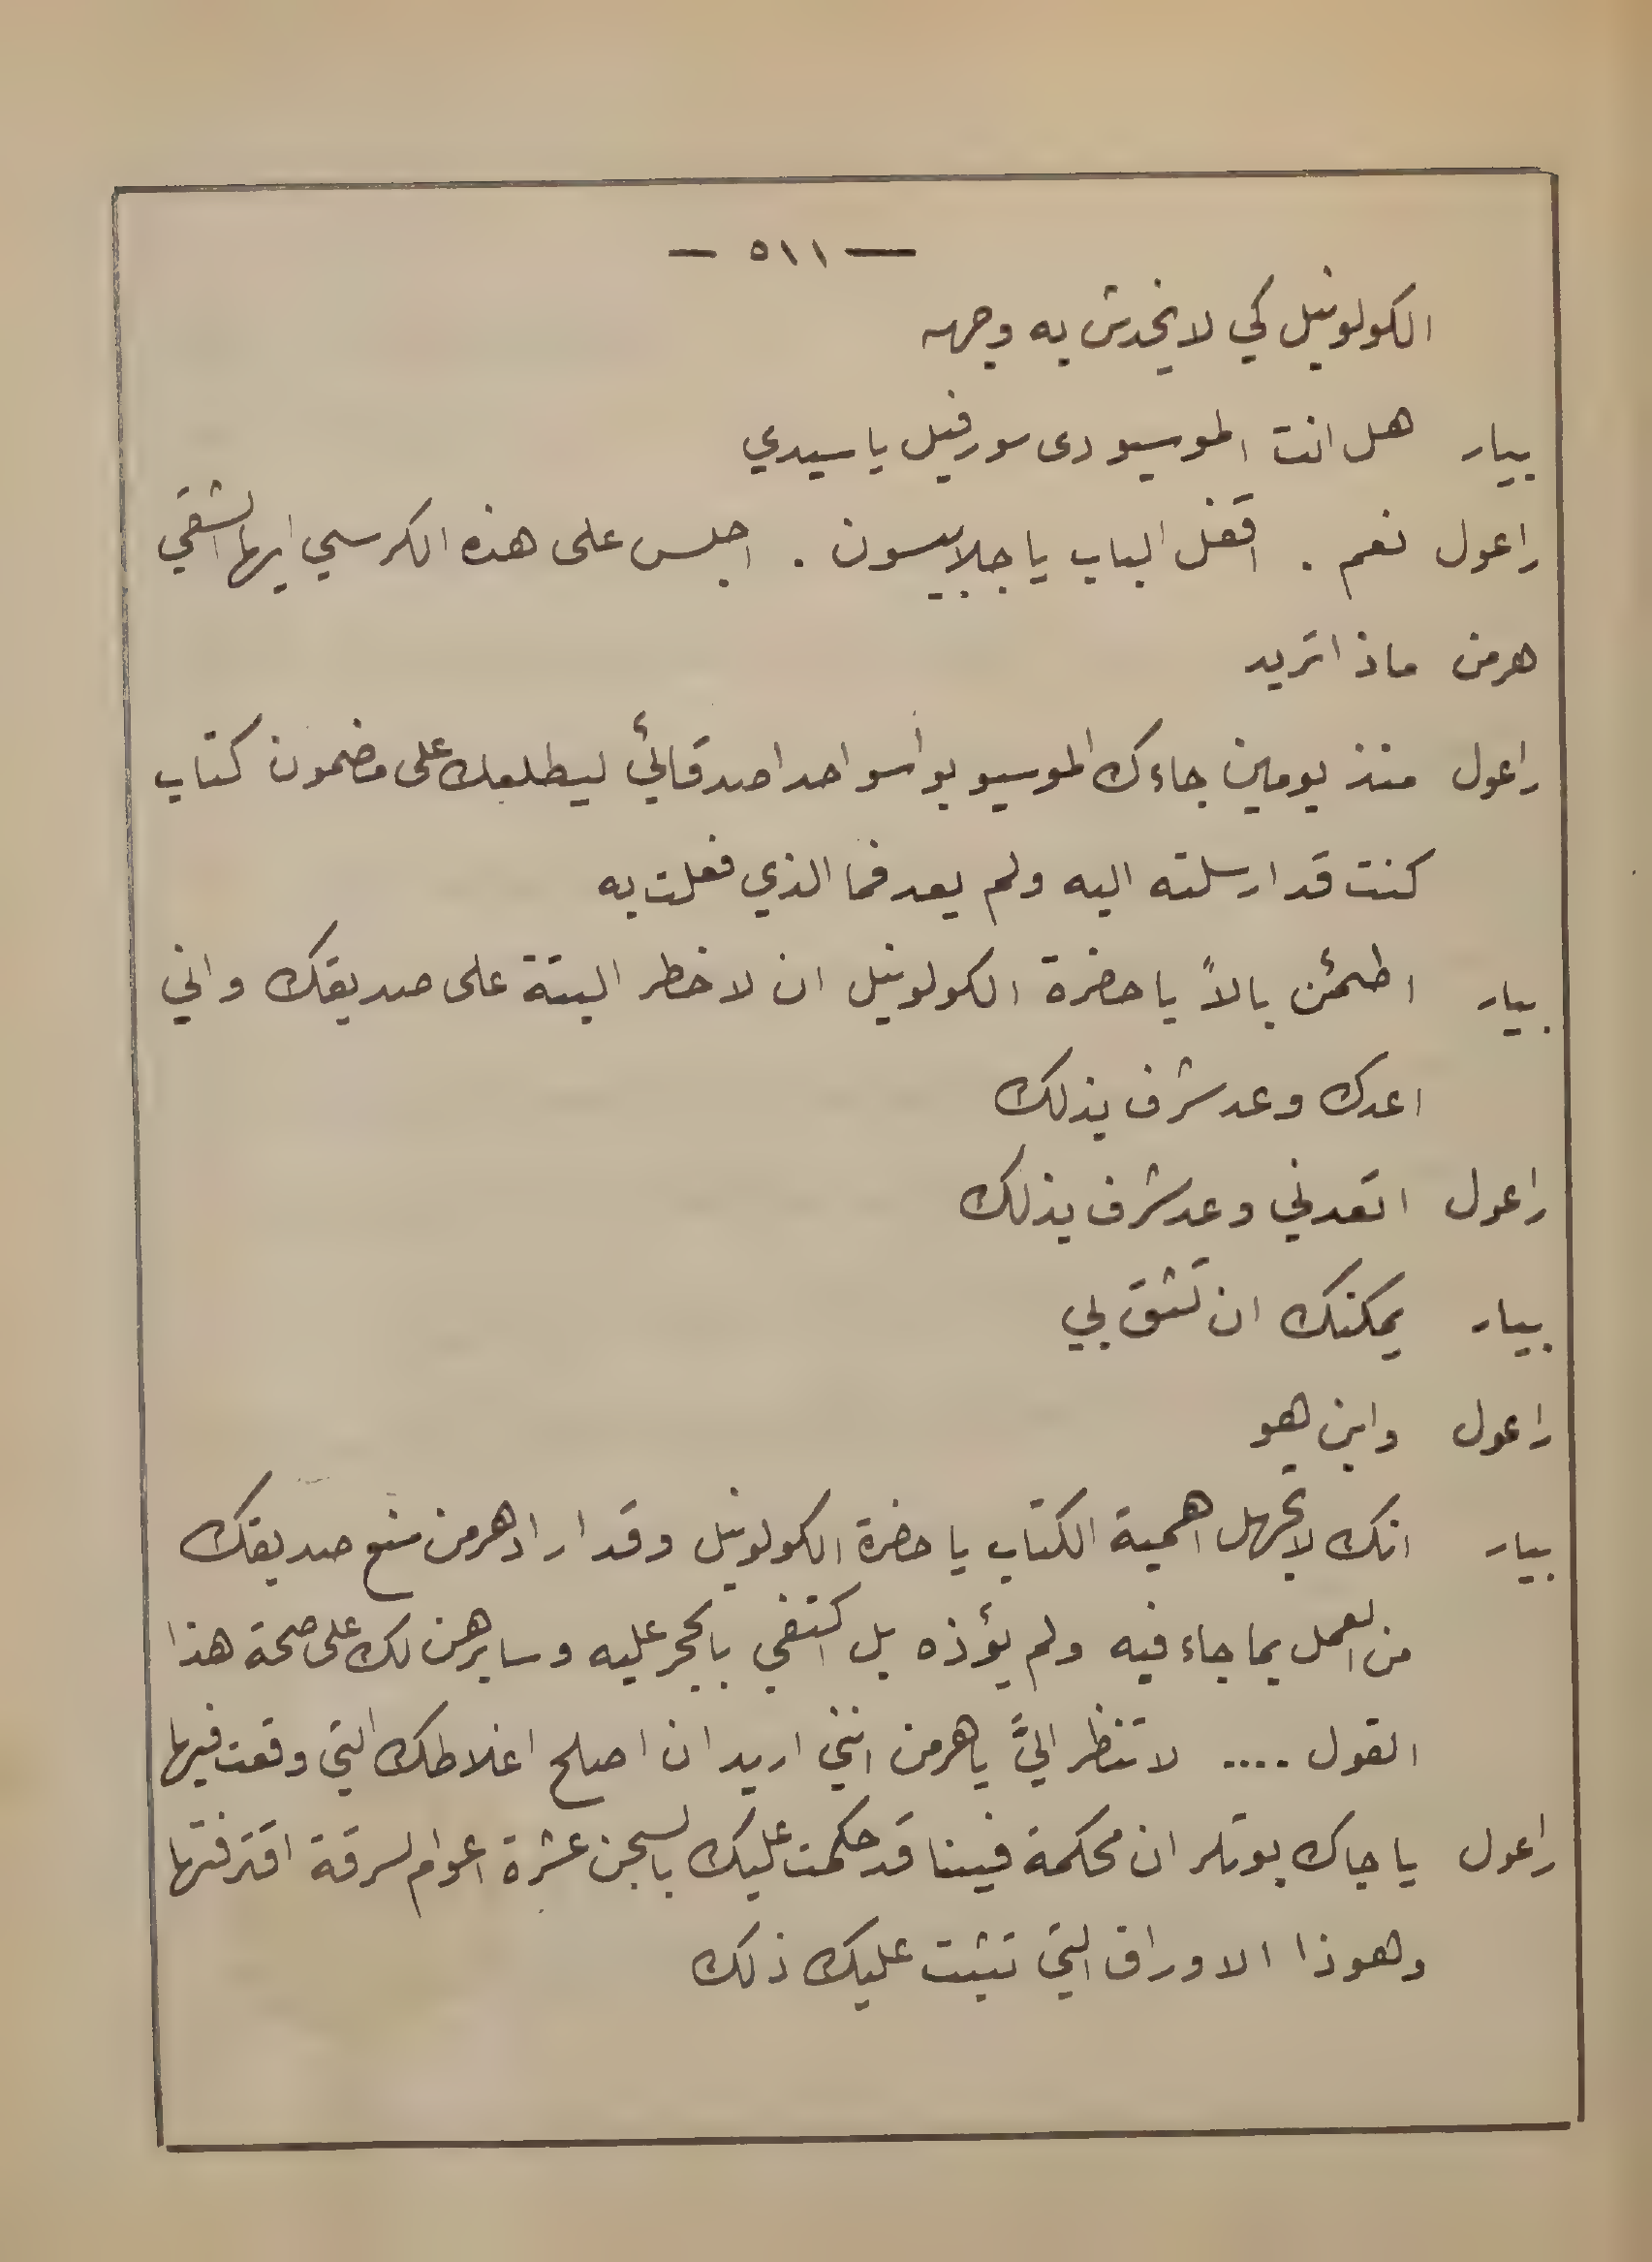 — ٥١١ —
الكولونيل كي لا يخدش به وجهه
بيار هل انت الموسيو دى سورفيل يا سيدي
راعول نعم . اقفل الباب يا جلابيسون . اجلس على هذه الكرسي ايها الشقي
هرمن ماذا تريد
راعول منذ يومين جاءك الموسيو بوأسو احد اصدقائي ليطلعك على مضمون كتاب
كنت قد ارسلته اليه ولم يعد فما الذي فعلت به
بيار اطمئن بالاً يا حضرة الكولونيل ان لا خطر البتة على صديقك واني
اعدك وعد شرف بذلك
راعول اتعدني وعد شرف بذلك
بيار يمكنك ان تثق بي
راعول واين هو
بيار انك لا تجهل اهمية الكتاب يا حضرة الكولونيل وقد اراد هرمن منع صديقك
من العمل بما جاء فيه ولم يؤذه بل اكتفي بالحجر عليه وسابرهن لك على صحة هذا
القول .... لا تنظر اليَّ يا هرمن انني اريد ان اصلح اغلاطك التي وقعت فيها
راعول يا جاك بوتلر ان محكمة فيينا قد حكمت عليك بالسجن عشرة اعوام لسرقة اقترفتها
وهوذا الاوراق التي تثبت عليك ذلك